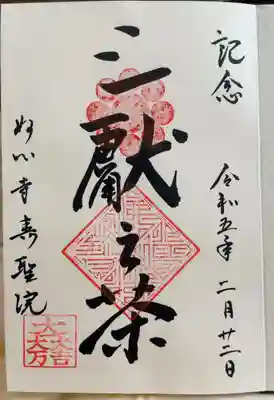 記念
令和五年 二月廿二日
三献之茶
妙心寺寿聖院
大一大万大吉